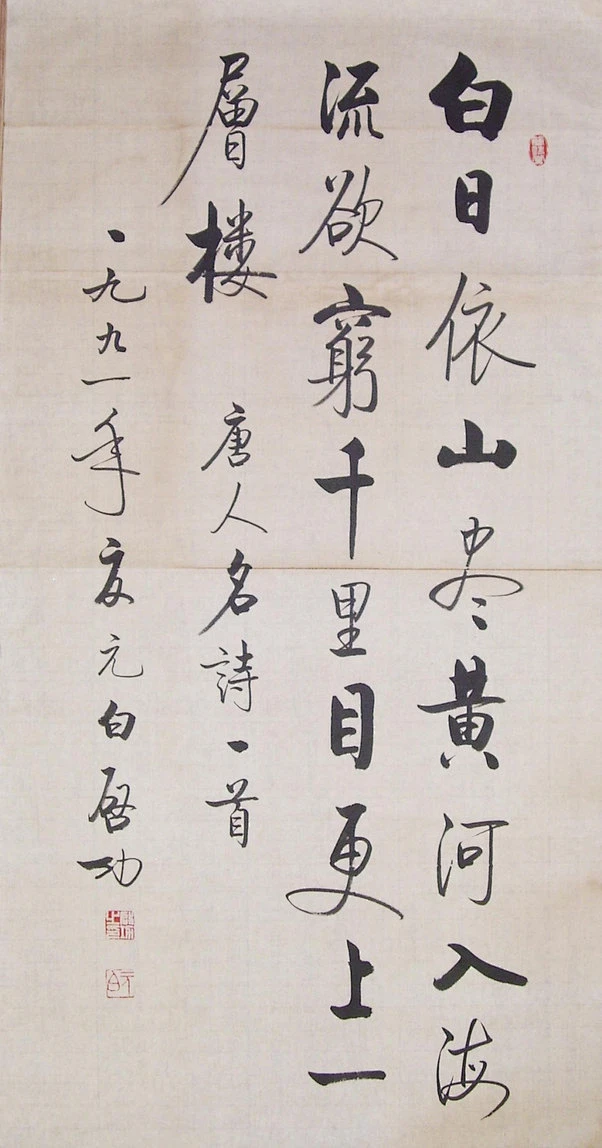 白日依山尽黄河入海
流欲窮千里目更上一
層楼 唐人名詩一首
一九九一年夏元白啓功